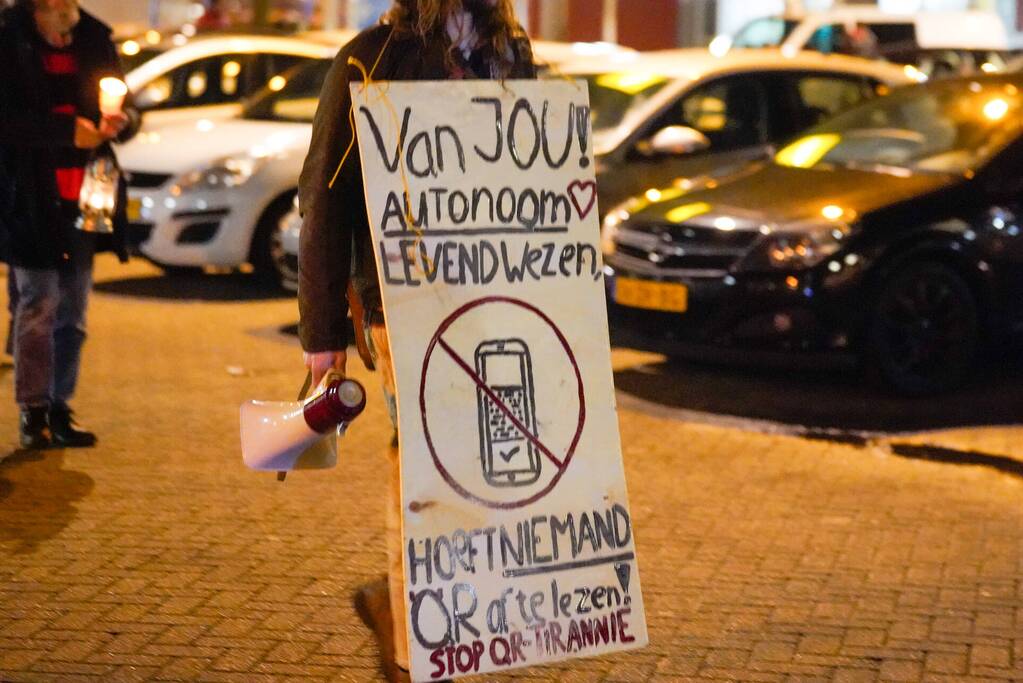 Van JOU!
AUTONOOM
LEVEND Wezen,
HOEFT NIEMAND
QR af te lezen!
STOP QR-TIRANNIE